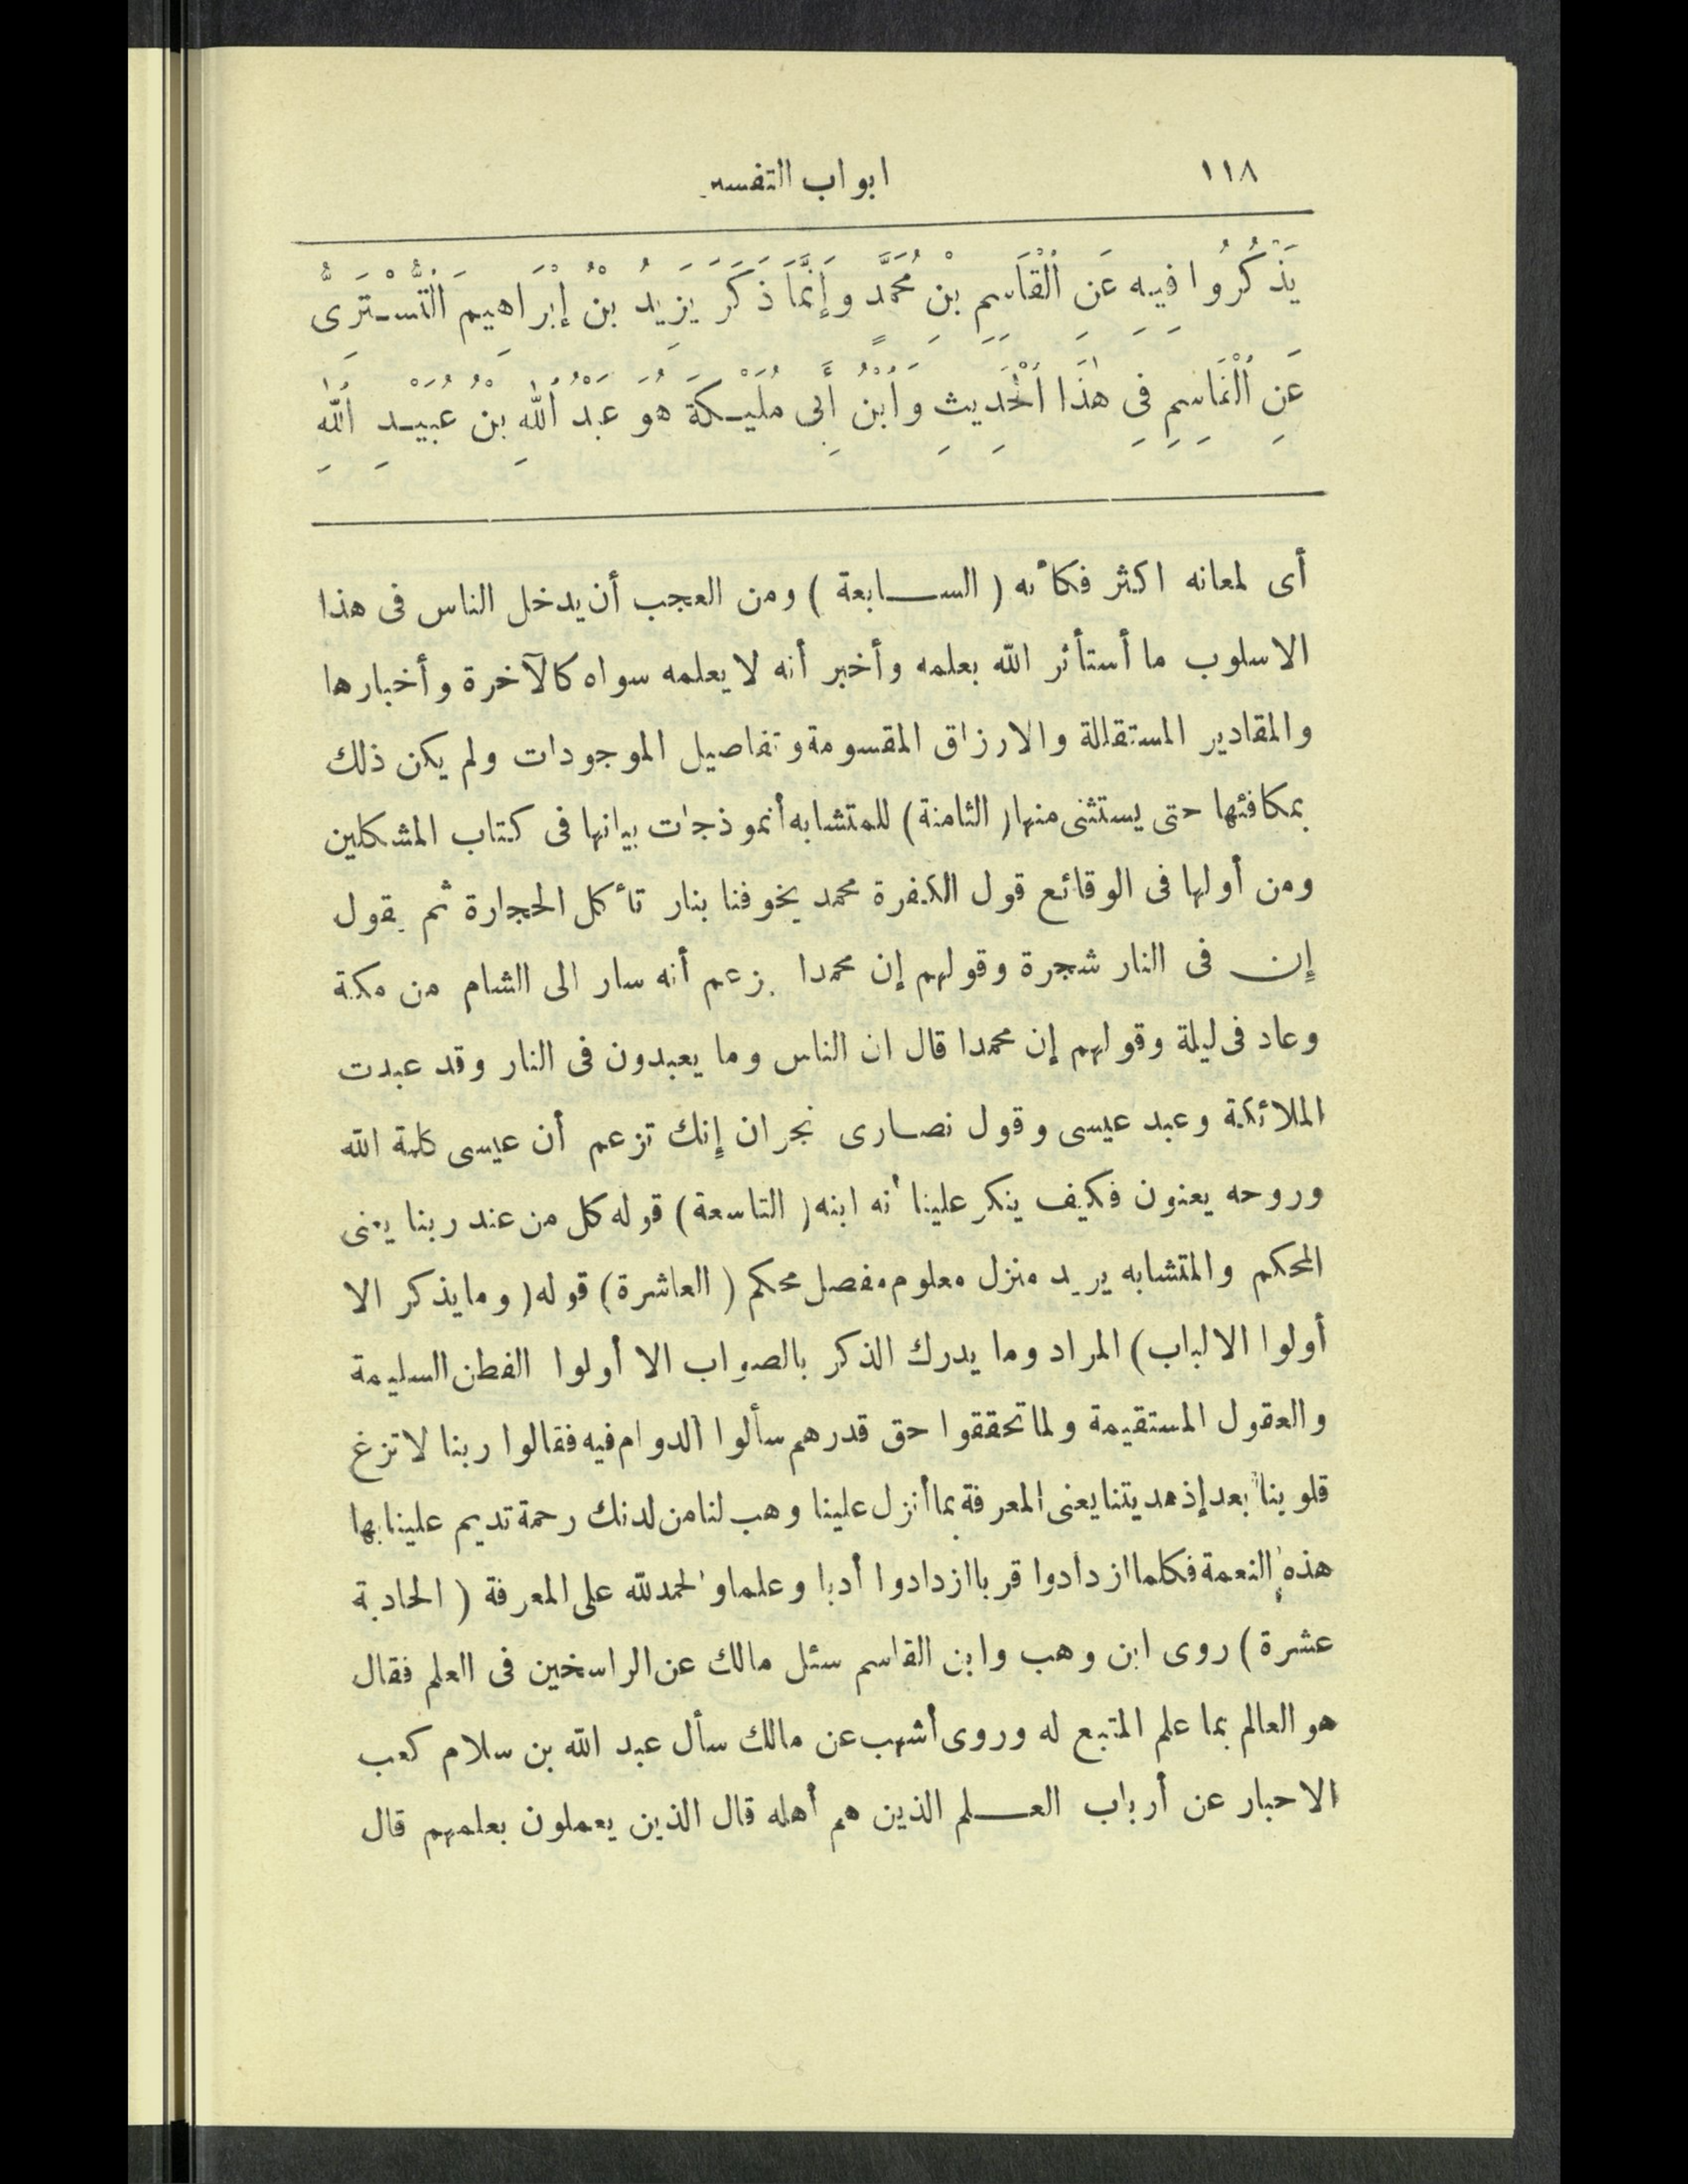 ١١٨ ابواب التفسير
يَذْكُرُوا فِيهِ عَنِ ٱلْقَاسِمِ بْنِ مُحَمَّدٍ وَإِنَّمَا ذَكَرَ يَزِيدُ بْنُ إِبْرَاهِيمَ ٱلتُّسْتَرِىُّ
عَنِ ٱلْقَاسِمِ فِى هٰذَا ٱلْحَدِيثِ وَٱبْنُ أَبِى مُلَيْكَةَ هُوَ عَبْدُ ٱللّٰهِ بْنُ عُبَيْدِ ٱللّٰهِ
أى لمعانه اكثر فكأنه ( السابعة ) ومن العجب أن يدخل الناس فى هذا
الاسلوب ما أستأثر الله بعلمه وأخبر أنه لا يعلمه سواه كالآخرة وأخبارها
والمقادير المستقاللة والارزاق المقسومة وتفاصيل الموجودات ولم يكن ذلك
بمكافئها حتى يستثنى منها ( الثامنة ) للمتشابه أنموذجات بيانها فى كتاب المشكلين
ومن أولها فى الوقائع قول الكفرة محمد يخوفنا بنار تأكل الحجارة ثم يقول
إن فى النار شجرة وقولهم إن محمدا يزعم أنه سار الى الشام من مكة
وعاد فى ليلة وقولهم إن محمدا قال ان الناس وما يعبدون فى النار وقد عبدت
الملائكة وعبد عيسى وقول نصارى نجران إنك تزعم أن عيسى كلمة الله
وروحه يعنون فكيف ينكر علينا أنه ابنه ( التاسعة ) قوله كل من عند ربنا يعنى
المحكم والمتشابه يريد منزل معلوم مفصل محكم ( العاشرة ) قوله ( وما يذكر الا
أولوا الالباب ) المراد وما يدرك الذكر بالصواب الا أولوا الفطن السليمة
والعقول المستقيمة ولما تحققوا حق قدرهم سألوا الدوام فيه فقالوا ربنا لا تزغ
قلوبنا بعد إذ هديتنا يعنى المعرفة بما أنزل علينا وهب لنا من لدنك رحمة تديم علينا بها
هذه النعمة فكلما ازدادوا قربا ازدادوا أدبا وعلما والحمد لله على المعرفة ( الحادية
عشرة ) روى ابن وهب وابن القاسم سئل مالك عن الراسخين فى العلم فقال
هو العالم بما علم المتبع له وروى أشهب عن مالك سأل عبد الله بن سلام كعب
الاحبار عن أرباب العلم الذين هم أهله قال الذين يعملون بعلمهم قال